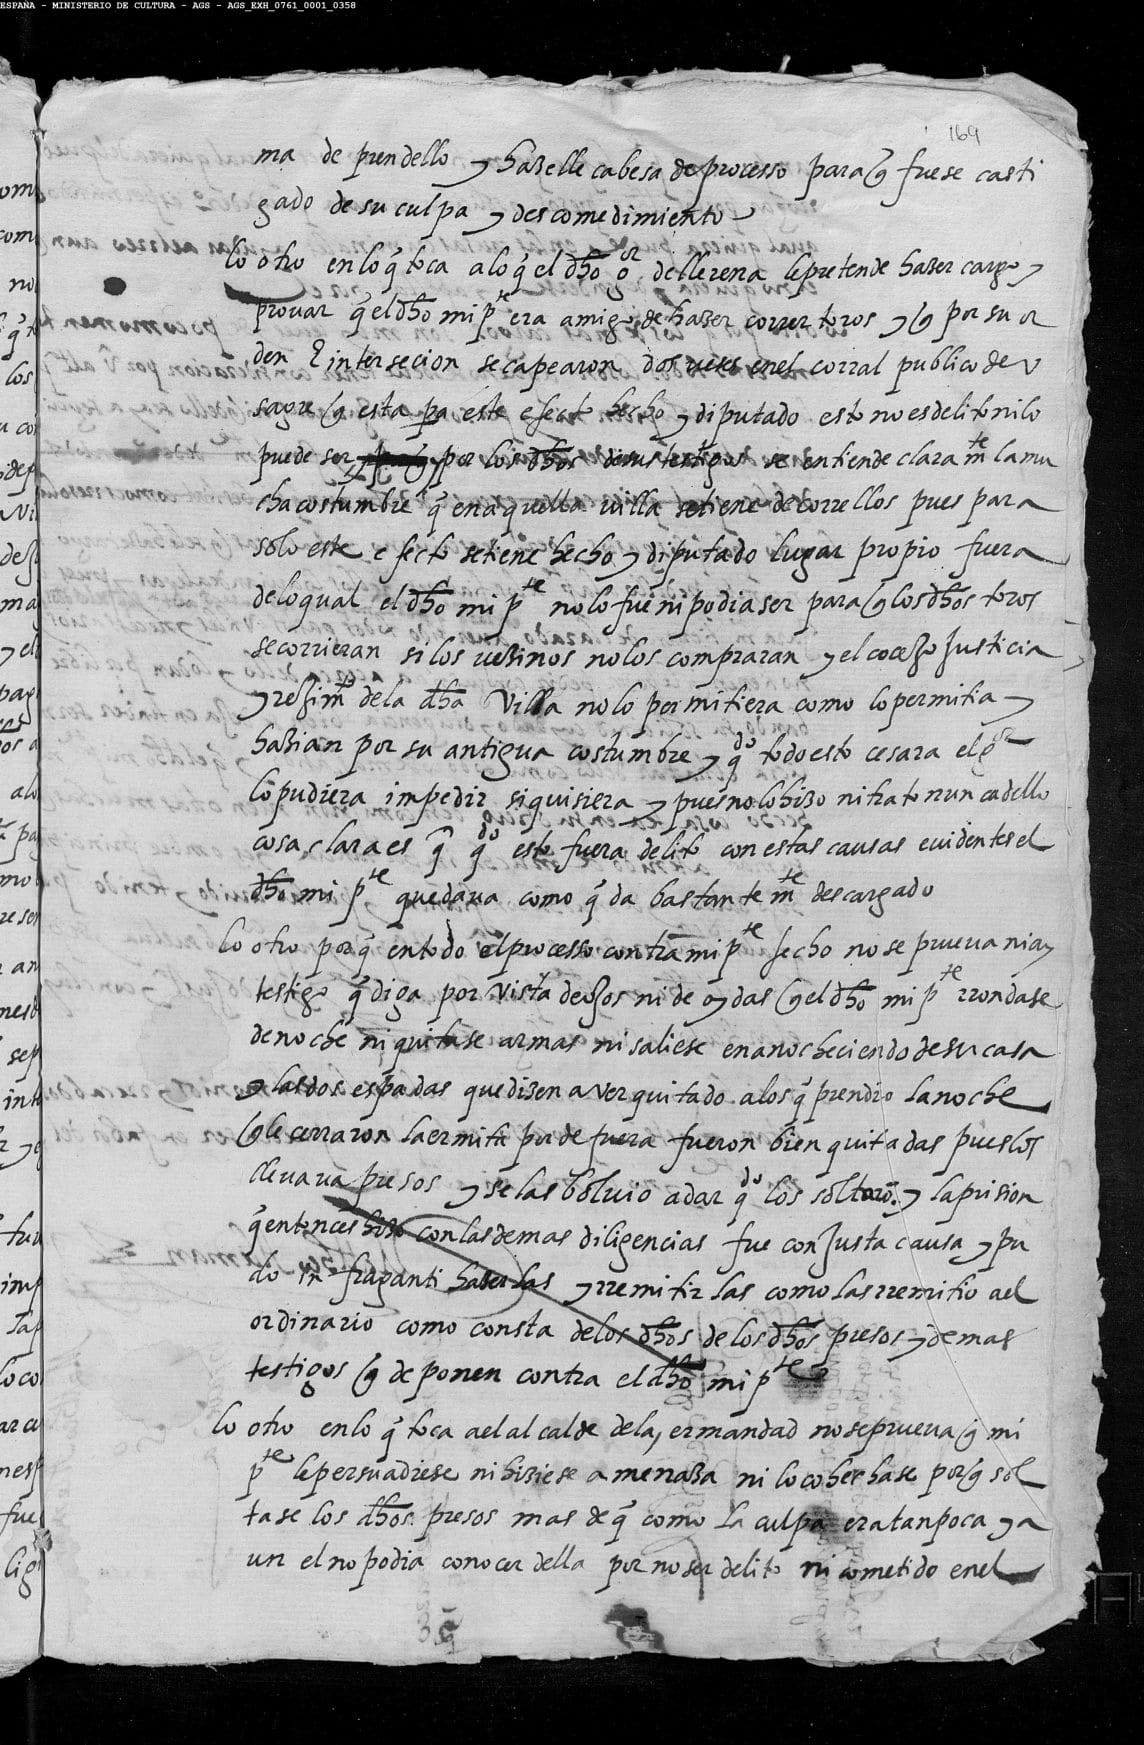 ESPAÑA - MINISTERIO DE CULTURA - AGS - AGS_EXH_0761_0001_0358
169
ma de prendello y hazelle cabesa de processo para q fuese casti
gado de su culpa y descomedimiento
lo otro en lo q̃ toca a lo q̃ el dho gor de llerena le pretende hazer cargo y
provar q̃ el dho mi pte era amigo de hazer correr toros y q por su or
den E intersecion se capearon dos vezes en el corral publico de v
sagre q esta pa este efecto hecho y diputado esto no es delito ni lo
puede ser por los dhos de sus testigos se entiende claramte la mu
cha costumbre q̃ en aquella villa se tiene de correllos pues para
solo este efecto se tiene hecho y diputado lugar propio fuera
de lo qual el dho mi pte no lo fue ni podia ser para q los dhos toros
se corrieran si los vezinos no los compraran y el cocejo Justicia
y rejimto de la dha Villa no lo permitiera como lo permitia y
hazian por su antigua costumbre y qdo todo esto cesara el gor
lo pudiera impedir si quisiera y pues no lo hizo ni trato nunca dello
cosa clara es q̃ qdo esto fuera delito con estas causas evidentes el
dho mi pte quedava como q̃da bastantemte descargado
lo otro porq̃ en todo el processo contra mi pte fecho no se prueva ni ay
testigo q̃ diga por vista de ojos ni de oydas q el dho mi pte rrondase
de noche ni quitase armas ni saliese en anocheciendo de su casa
y las dos espadas que dizen aver quitado a los q̃ prendio la noche
q le cerraron la ermita por de fuera fueron bien quitadas pues los
llevava presos y se las bolvio a dar qdo los soltarõ y la prision
q̃ entonces hizo con las demas diligencias fue con Justa causa y pu
do in fraganti hazerlas y rremitirlas como las rremitio ael
ordinario como consta de los dhos de los dhos presos y demas
testigos q deponen contra el dho mi pte
lo otro en lo q̃ toca ael alcalde de la ermandad no se prueva q mi
pte le persuadiese ni hiziese amenaza ni lo cohechase porq sol
tase los dhos presos mas de q̃ como la culpa era tan poca y a
un el no podia conocer della por no ser delito ni cometido en el